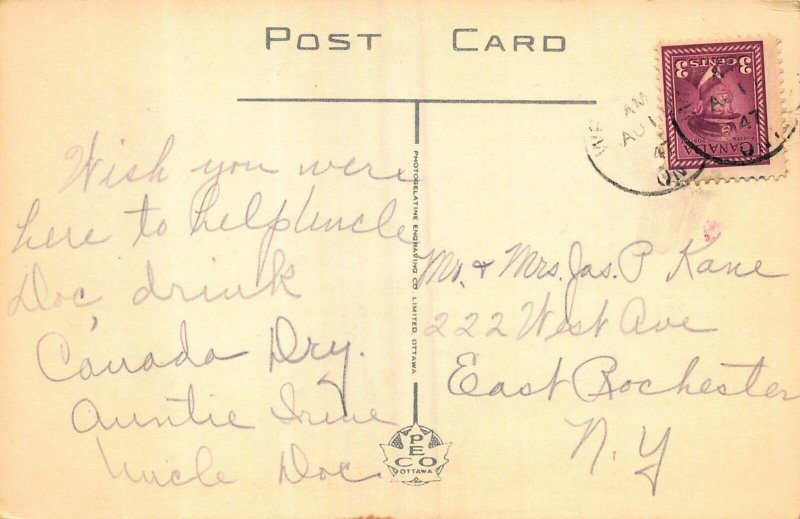 POST CARD
Wish you were
here to help Uncle
Doc, drink
Canada Dry.
Auntie Irene
Uncle Doc
PHOTOGELATINE ENGRAVING CO. LIMITED, OTTAWA
PECO
OTTAWA
3 CENTS 3
CANADA
AM
AU 1
47
ON
Mr. & Mrs. Jas. P Kane
222 West Ave
East Rochester
N.Y